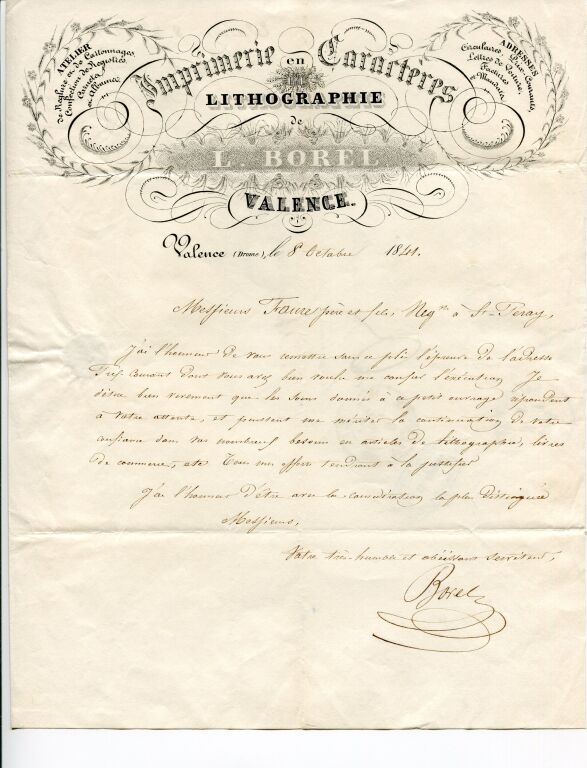 ATELIER
de Reglure et de Cartonnages,
Confection de Registres
Carnets
et Albums.
Imprimerie en Caractères
LITHOGRAPHIE
de
L. BOREL
VALENCE.
ADRESSES
Circulaires, Prix-Courants,
Lettres de Voiture,
Factures
et Mandats.
Valence (Drome), le 8 Octobre 1841.
Messieurs Faure père et fils, Negts à St-Peray,
J'ai l'honneur de vous remettre sous ce pli l'épreuve de l'adresse
Prix courant dont vous avez bien voulu me confier l'exécution. Je
désire bien vivement que les soins donnés à ce petit ouvrage répondent
à votre attente, et puissent me mériter la continuation de votre
confiance dans vos nombreux besoins en articles de lithographie, livres
de commerce, etc. Tous mes efforts tendront à la justifier
J'ai l'honneur d'être avec la considération la plus distinguée
Messieurs,
Votre très-humble et obéissant serviteur,
Borel